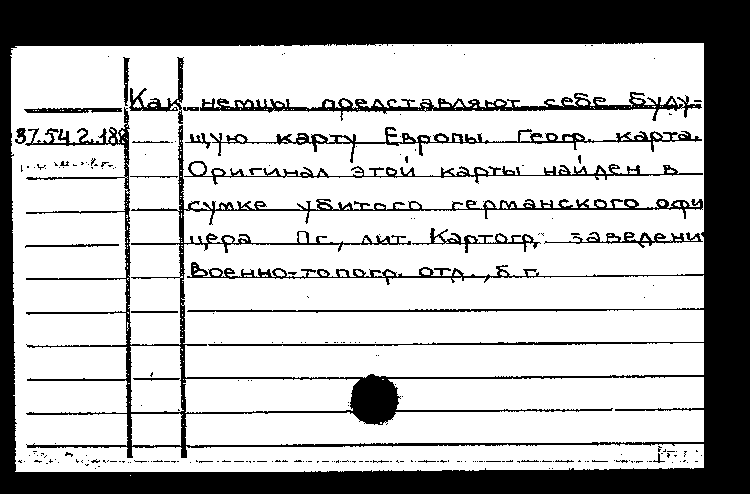 Как немцы представляют себе буду-
37.54.2.188 щую карту Европы. Геогр. карта.
Оригинал этой карты найден в
сумке убитого германского офи
цера Пг., лит. Картогр. заведени
Военно-топогр. отд., б.г.